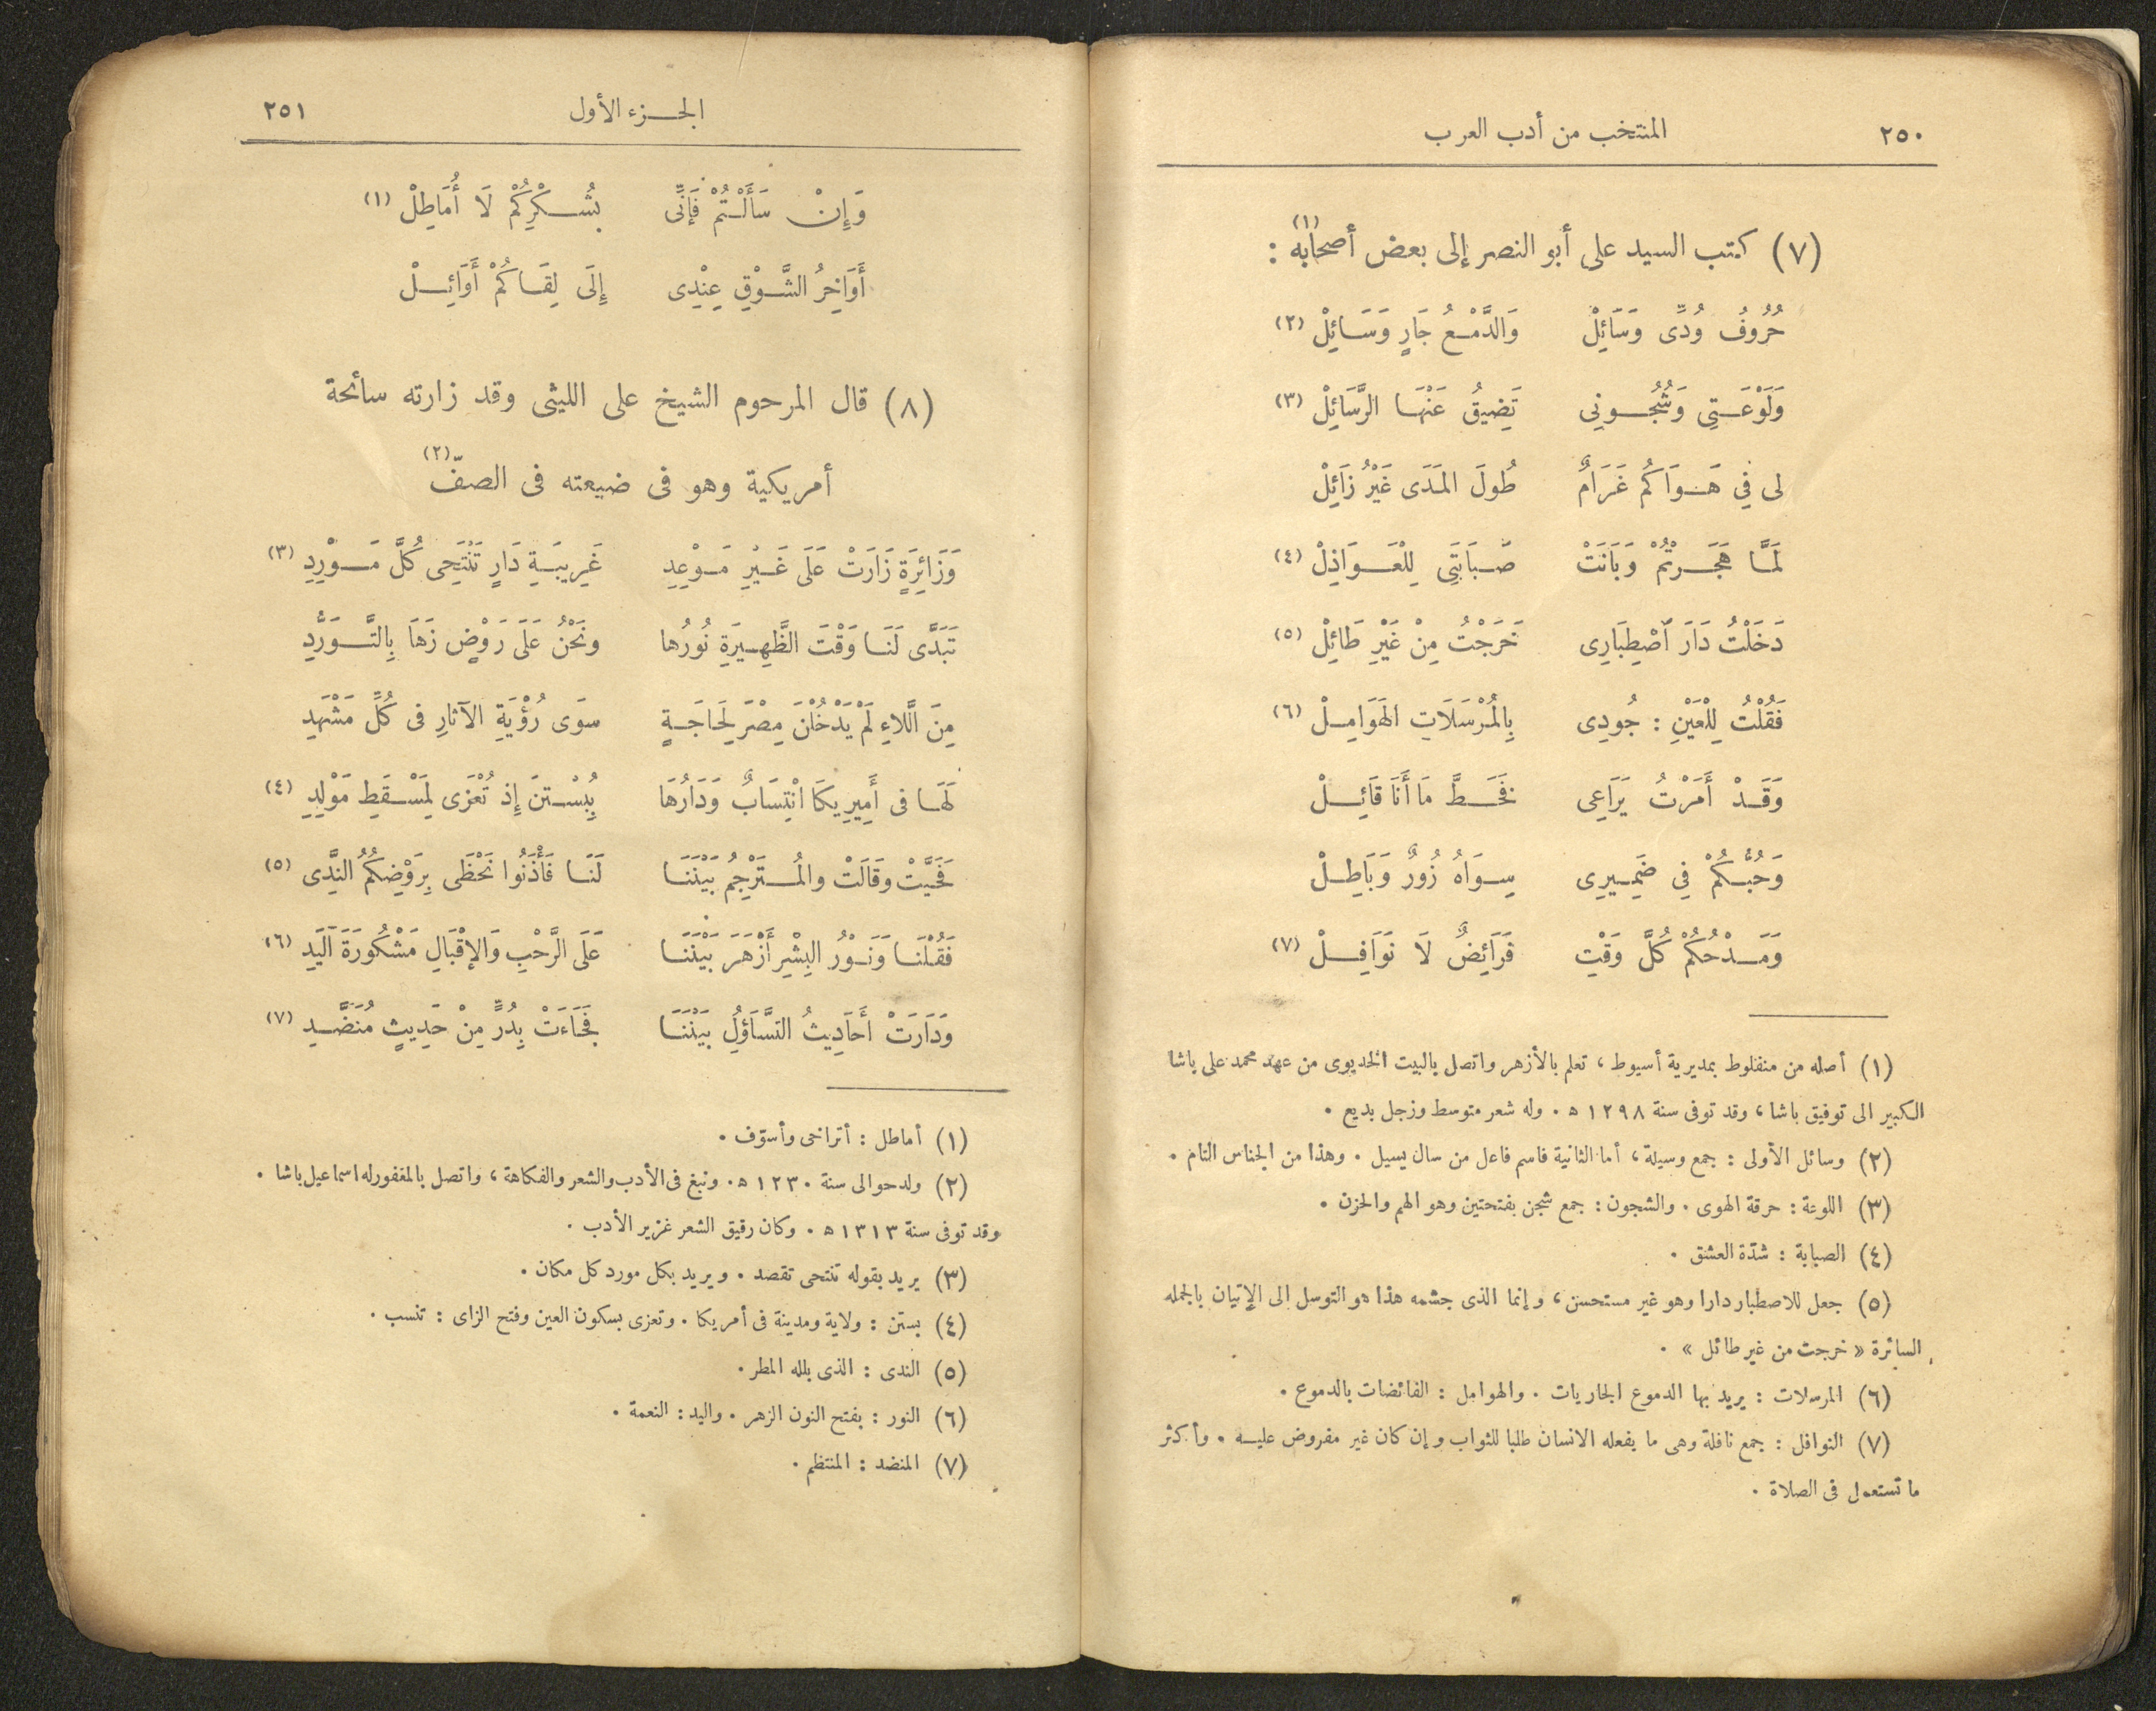 ٢٥٠
المنتخب من أدب العرب
(٧) كتب السيد على أبو النصر إلى بعض أصحابه (١) :
حُرُوفُ وُدِّى وَسَائِلْ وَالدَّمْعُ جَارٍ وَسَائِلْ (٢)
وَلَوْعَتِى وَشُجُونِى تَضِيقُ عَنْهَا الرَّسَائِلْ (٣)
لى فِي هَوَاكُم غَرَامٌ طُولَ المَدَى غَيْرُ زَائِلْ
لَمَّا هَجَرْتُمْ وَبَانَتْ صَبَابَتِى لِلْعَوَاذِلْ (٤)
دَخَلْتُ دَارَ ٱصْطِبَارِى خَرَجْتُ مِنْ غَيْرِ طَائِلْ (٥)
فَقُلْتُ لِلْعَيْنِ : جُودِى بِالمُرْسَلَاتِ الهَوَامِلْ (٦)
وَقَدْ أَمَرْتُ يَرَاعِى فَخَطَّ مَا أَنَا قَائِلْ
وَحُبُّكُمْ فِي ضَمِيرِى سِوَاهُ زُورٌ وَبَاطِلْ
وَمَدْحُكُمْ كُلَّ وَقْتٍ فَرَائِضٌ لَا نَوَافِلْ (٧)
(١) أصله من منفلوط بمديرية أسيوط ، تعلم بالأزهر واتصل بالبيت الخديوى من عهد محمد على باشا
الكبير الى توفيق باشا ، وقد توفى سنة ١٢٩٨ ه . وله شعر متوسط وزجل بديع .
(٢) وسائل الأولى : جمع وسيلة ، أما الثانية فاسم فاعل من سال يسيل . وهذا من الجناس التام .
(٣) اللوعة : حرقة الهوى . والشجون : جمع شجن بفتحتين وهو الهم والحزن .
(٤) الصبابة : شدّة العشق .
(٥) جعل للاصطبار دارا وهو غير مستحسن ، وإنما الذى جشمه هذا هو التوسل الى الإتيان بالجملة
السائرة « خرجت من غير طائل » .
(٦) المرسلات : يريد بها الدموع الجاريات . والهوامل : الفائضات بالدموع .
(٧) النوافل : جمع نافلة وهى ما يفعله الانسان طلبا للثواب وإن كان غير مفروض عليه . وأكثر
ما تستعمل فى الصلاة .
الجزء الأول
٢٥١
وَإِنْ سَأَلْتُمْ فَإِنِّى بِشُكْرِكُمْ لَا أُمَاطِلْ (١)
أَوَاخِرُ الشَّوْقِ عِنْدِى إِلَى لِقَاكُمْ أَوَائِلْ
(٨) قال المرحوم الشيخ على الليثى وقد زارته سائحة
أمريكية وهو فى ضيعته فى الصفّ (٢)
وَزَائِرَةٍ زَارَتْ عَلَى غَيْرِ مَوْعِدِ غَرِيبَةِ دَارٍ تَنْتَحِى كُلَّ مَوْرِدِ (٣)
تَبَدَّى لَنَا وَقْتَ الظَّهِيرَةِ نُورُها ونَحْنُ عَلَى رَوْضٍ زَهَا بِالتَّوَرُّدِ
مِنَ الَّلاءِ لَمْ يَدْخُلْنَ مِصْرَ لِحَاجَةٍ سِوَى رُؤْيَةِ الآثارِ فى كُلِّ مَشْهَدِ
لَهَا فى أَمِيرِيكَا انْتِسَابٌ وَدَارُهَا بِبُسْتنَ إِذ تُعْزَى لِمَسْقَطِ مَوْلِدِ (٤)
فَحَيَّتْ وقَالَتْ والمُتَرْجِمُ بَيْنَنَا لَنَا فَأْذَنُوا نَحْظَى بِرَوْضِكُمُ النَّدِى (٥)
فَقُلْنَا وَنَوْرُ البِشْرِ أَزْهَرَ بَيْنَنَا عَلَى الرَّحْبِ وَالإقْبَالِ مَشْكُورَةَ ٱليَدِ (٦)
وَدَارَتْ أَحَادِيثُ التَّسَاؤُلِ بَيْنَنَا فَجَاءَتْ بِدُرٍّ مِنْ حَدِيثٍ مُنَضَّدِ (٧)
(١) أماطل : أتراخى وأسوّف .
(٢) ولد حوالى سنة ١٢٣٠ ه . ونبغ فى الأدب والشعر والفكاهة ، واتصل بالمغفور له اسماعيل باشا .
وقد توفى سنة ١٣١٣ ه . وكان رقيق الشعر غزير الأدب .
(٣) يريد بقوله تنتحى تقصد . ويريد بكل مورد كل مكان .
(٤) بستن : ولاية ومدينة فى أمريكا . وتعزى بسكون العين وفتح الزاى : تنسب .
(٥) الندى : الذى بلله المطر .
(٦) النور : بفتح النون الزهر . واليد : النعمة .
(٧) المنضد : المنتظم .